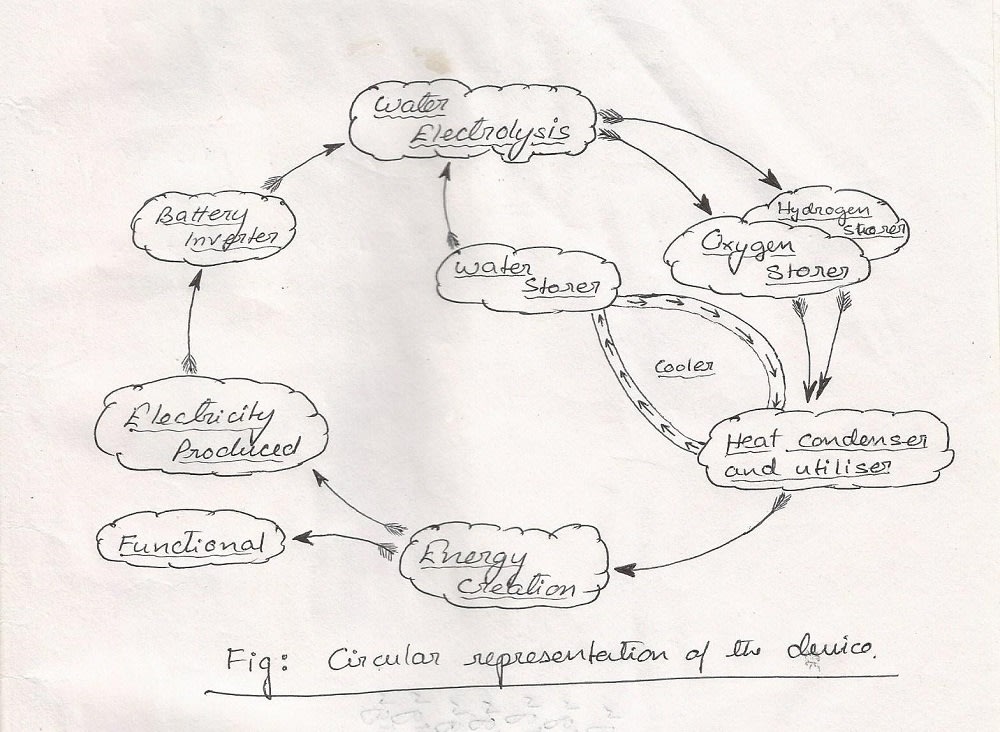 Water
Electrolysis
Hydrogen
Storer
Battery
Inverter
Oxygen
Storer
Water
Storer
Cooler
Electricity
Produced
Heat condenser
and utiliser
Functional
Energy
Creation
Fig: Circular representation of the device.